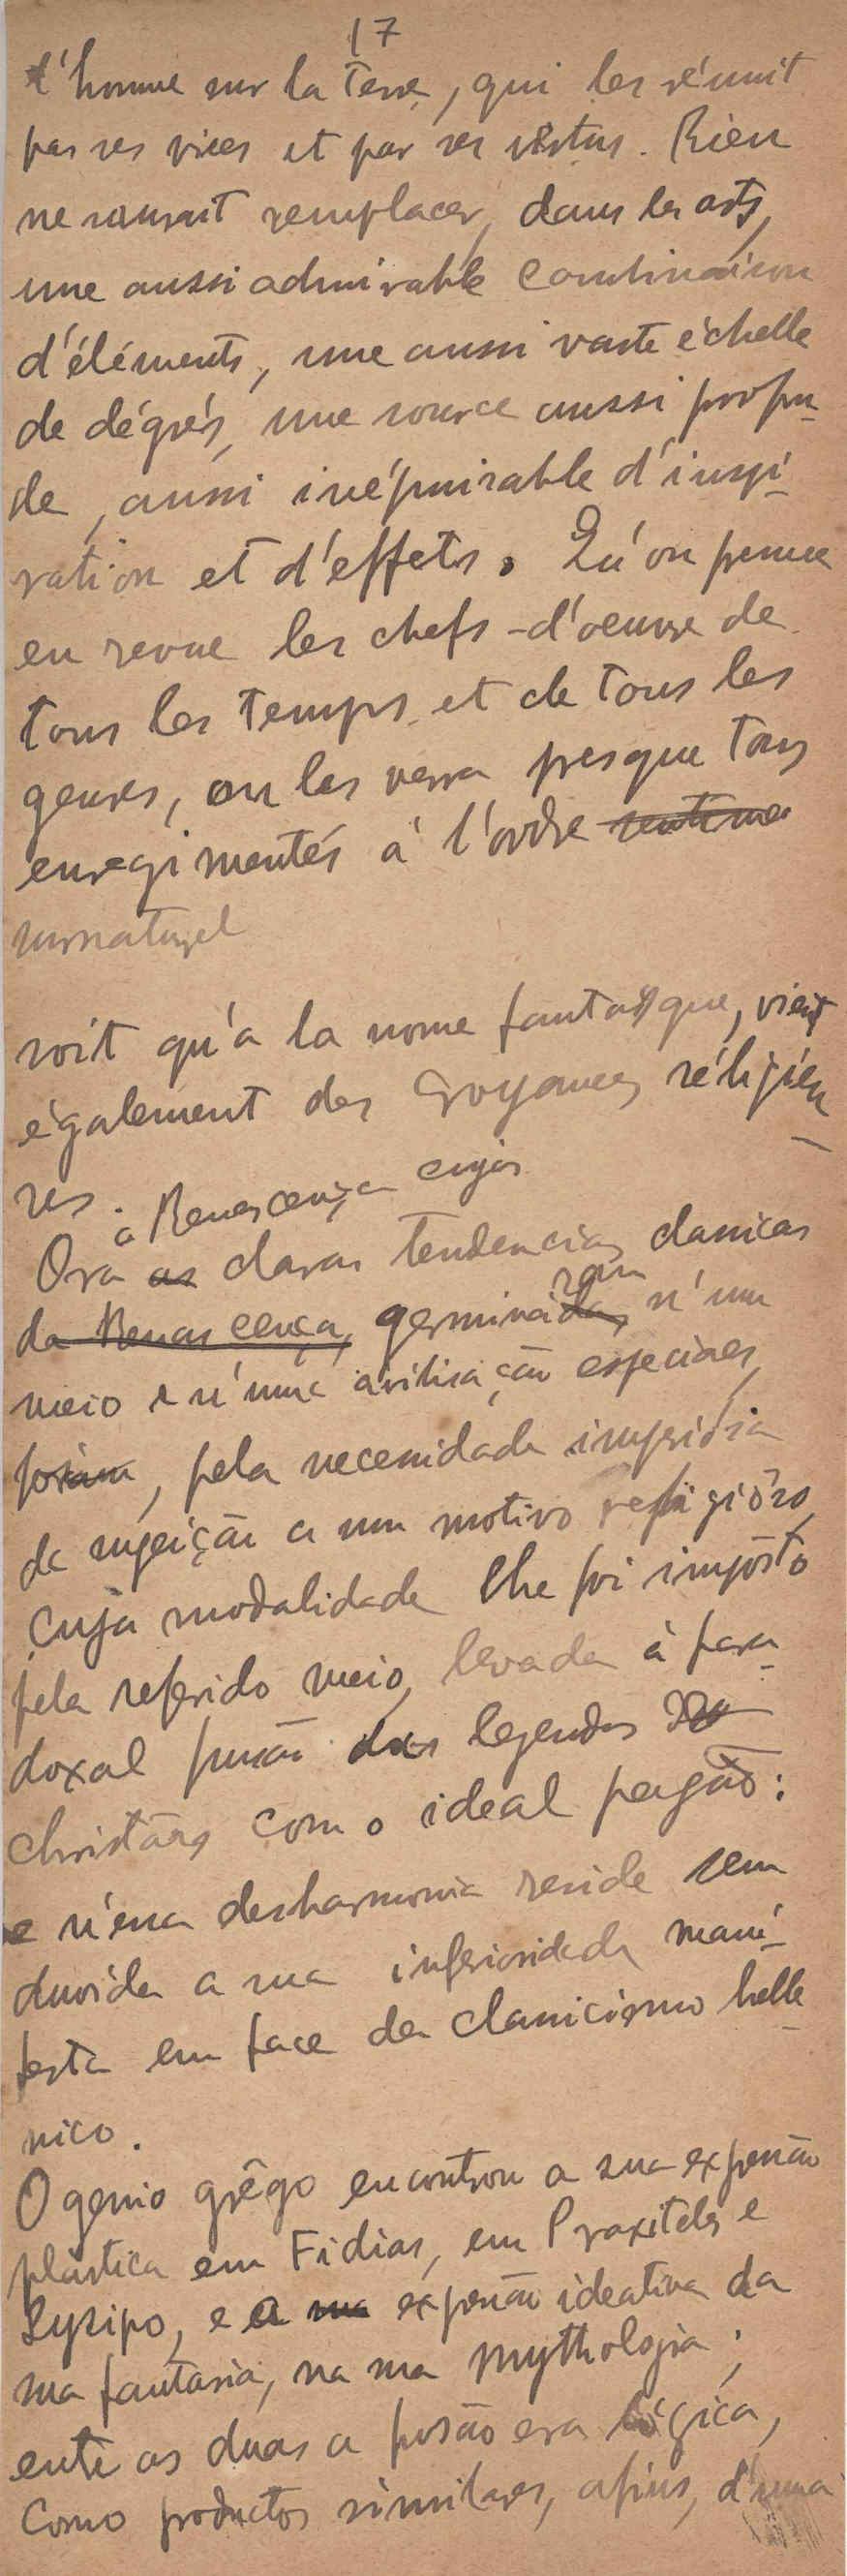 17
l'homme sur la Terre, qui les réunit
par ses vices et par ses vertus. Rien
ne saurait remplacer, dans les arts,
une aussi admirable combinaison
d'éléments, une aussi vaste échelle
de dégrés, une source aussi profon-
de, aussi inépuisable d'inspi-
ration et d'effets. Qu'on passe
en revue les chefs-d'oeuvre de
tous les temps et de tous les
genres, on les verra presque tous
enregimentés à l'ordre sentime
surnaturel
soit qu'a la nome fantasque, vient
également des croyances réligieu-
ses.
a Renascença cujas
Ora as claras tendencias classicas
da Renascença, germinadas ram n'um
meio e n'uma civilisação especiaes,
foram, pela necessidade imperiosa
de sujeição a um motivo religiôso,
cuja modalidade lhe foi impôsta
pelo referido meio, levada á para-
doxal fusão das legendas
christãns com o ideal pagão:
e n'essa desharmonia reside sem
duvida a sua inferioridade mani-
festa em face do classicismo helle-
nico.
O genio grêgo encontrou a sua expressão
plastica em Fidias, em Praxiteles e
Lysipo, e a sua expressão ideativa da
sua fantasia, na sua mythologia;
entre as duas a fusão era lógica,
como productos similares, afins, d'uma